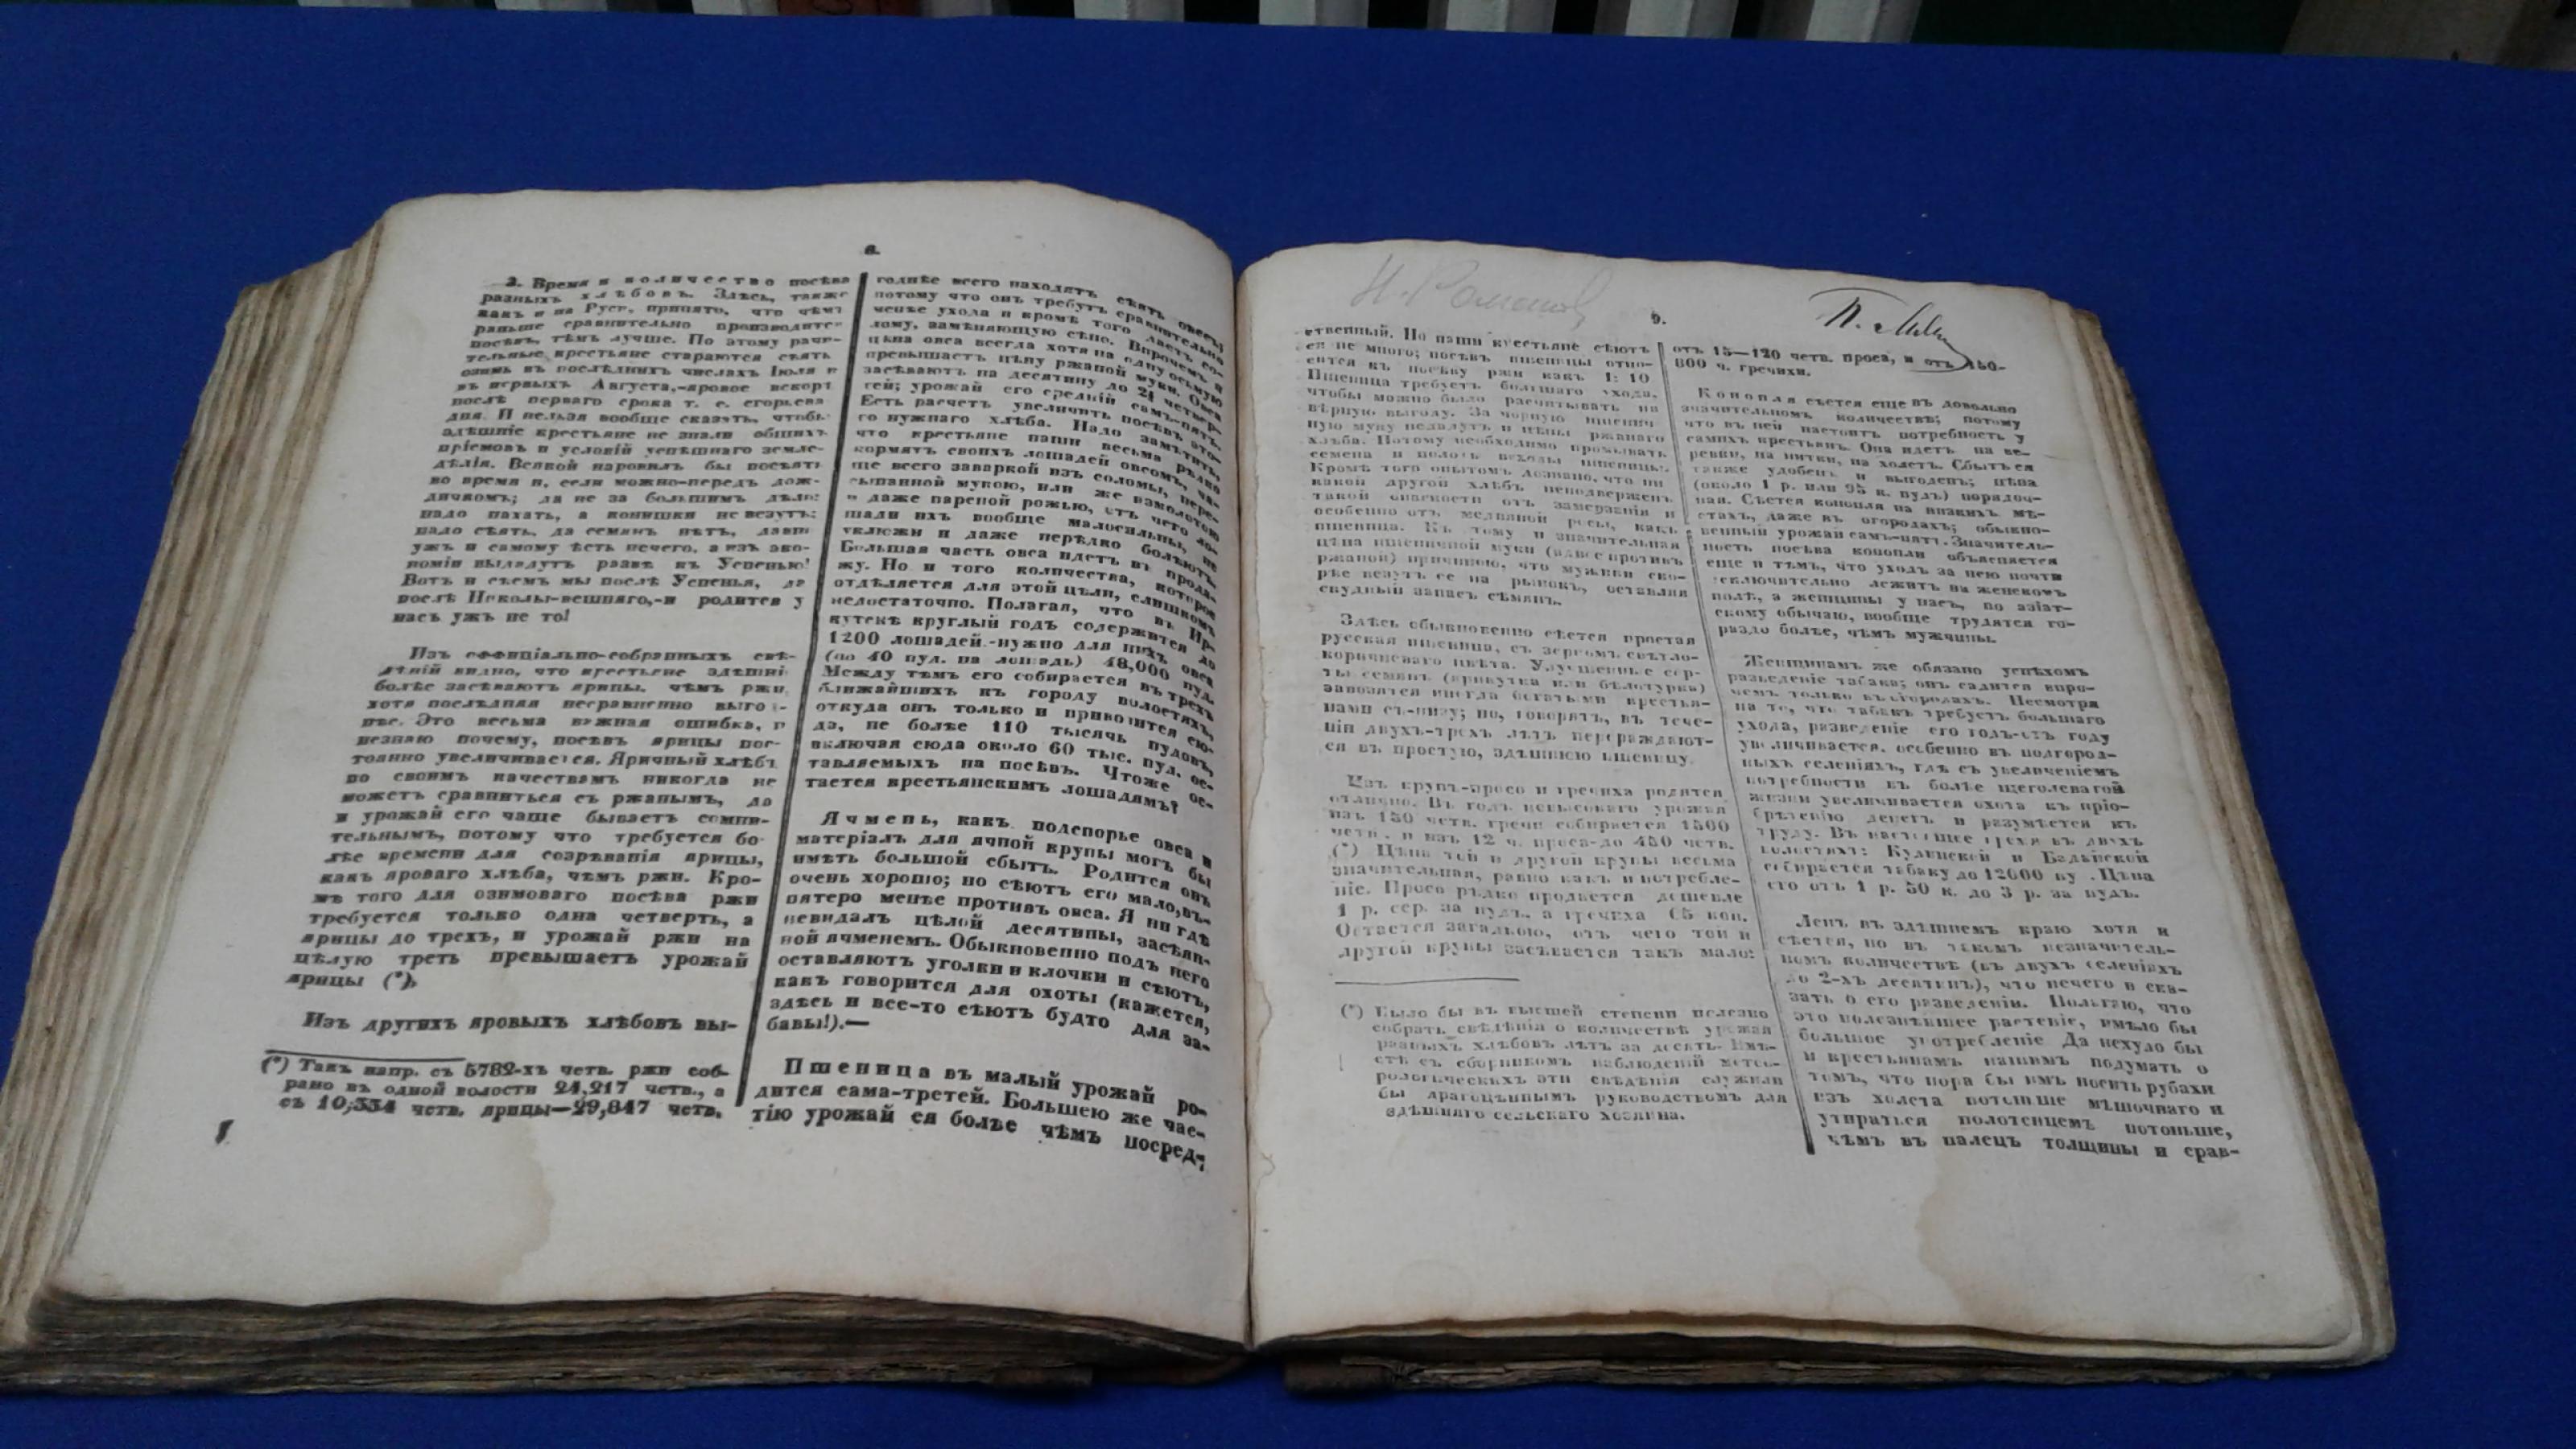 8.
2. Время и количество посѣва
разныхъ хлѣбовъ. Здѣсь, также
какъ и на Руси, принято, что чѣмъ
раньше сравнительно производится
посѣвъ, тѣмъ лучше. По этому рачи-
тельные крестьяне стараются сѣять
озимь въ послѣднихъ числахъ Іюля и
въ первыхъ Августа,-яровое вскорѣ
послѣ перваго срока т. е. егорьева
дня. И нельзя вообще сказать, чтобы
здѣшніе крестьяне не знали общихъ
пріемовъ и условій успѣшнаго земле-
дѣлія. Всякой наровилъ бы посѣять
во время и, если можно-передъ дож-
дичкомъ; да не за большимъ дѣло:
надо пахать, а конишки не везутъ;
надо сѣять, да семянъ нѣтъ, давно
ужъ и самому ѣсть нечего, а изъ эко-
номіи выдадутъ развѣ къ Успенью!
Вотъ и сѣемъ мы послѣ Успенья, да
послѣ Николы-вешняго,-и родится у
насъ ужъ не то!
Изъ оффиціально-собранныхъ свѣ-
дѣній видно, что крестьяне здѣшніе
болѣе засѣваютъ ярицы, чѣмъ ржи
хотя послѣдняя несравненно выгод-
нѣе. Это весьма важная ошибка, и
незнаю почему, посѣвъ ярицы пос-
тоянно увеличивается. Яричный хлѣбъ
по своимъ качествамъ никогда не
можетъ сравниться съ ржанымъ, да
и урожай его чаще бываетъ сомни-
тельнымъ, потому что требуется бо-
лѣе времени для созрѣванія ярицы,
какъ яроваго хлѣба, чѣмъ ржи. Кро-
мѣ того для озимоваго посѣва ржи
требуется только одна четверть, а
ярицы до трехъ, и урожай ржи на
цѣлую треть превышаетъ урожай
ярицы (*).
Изъ другихъ яровыхъ хлѣбовъ вы-
(*) Такъ напр. съ 5782-хъ четв. ржи соб-
рано въ одной волости 24,217 четв., а
съ 10,334 четв. ярицы—29,847 четв.
годнѣе всего находятъ сѣять овесъ;
потому что онъ требуетъ сравнительно
менѣе ухода и кромѣ того даетъ со-
лому, замѣняющую сѣно. Впрочемъ и
цѣна овса всегда хотя на одну осьмую
превышаетъ цѣну ржаной муки. Овса
засѣваютъ на десятину до 2½ четвер-
тей; урожай его средній самъ-пятъ.
Есть расчетъ увеличить посѣвъ это-
го нужнаго хлѣба. Надо замѣтить,
что крестьяне наши весьма рѣдко
кормятъ своихъ лошадей овсомъ, ча-
ще всего заваркой изъ соломы, пере-
сыпанной мукою, или же размолотою
и даже пареной рожью, отъ чего ло-
шади ихъ вообще малосильны, не
уклюжи и даже нерѣдко болѣютъ.
Большая часть овса идетъ въ прода-
жу. Но и того количества, которое
отдѣляется для этой цѣли, слишкомъ
недостаточно. Полагая, что въ Ир-
кутскѣ круглый годъ содержится до
1200 лошадей-нужно для нихъ овса
(по 40 пуд. на лошадь) 48,000 пуд.
Между тѣмъ его собирается въ трехъ
ближайшихъ къ городу волостяхъ,
откуда онъ только и привозится сю-
да, не болѣе 110 тысячь пудовъ,
включая сюда около 60 тыс. пуд. ос-
тавляемыхъ на посѣвъ. Чтоже ос-
тается крестьянскимъ лошадямъ?
Ячмень, какъ подспорье овса и
матеріалъ для ячной крупы могъ бы
имѣть большой сбытъ. Родится онъ
очень хорошо; но сѣютъ его мало,въ-
пятеро менѣе противъ овса. Я ни гдѣ
невидалъ цѣлой десятины, засѣян-
ной ячменемъ. Обыкновенно подъ него
оставляютъ уголки и клочки и сѣютъ,
какъ говорится для охоты (кажется,
здѣсь и все-то сѣютъ будто для за-
бавы!).—
Пшеница въ малый урожай ро-
дится сама-третей. Большею же час-
тію урожай ея болѣе чѣмъ посред-
9.
ственный. Но наши крестьяне сѣютъ
ея не много; посѣвъ пшеницы отно-
сится къ посѣву ржи какъ 1: 10
Пшеница требуетъ большаго ухода,
чтобы можно было расчитывать на
вѣрную выгоду. За чорную пшенич-
ную муку недадутъ и цѣны ржанаго
хлѣба. Потому необходимо промывать
семена и полоть всходы пшеницы.
Кромѣ того опытомъ дознано, что ни
какой другой хлѣбъ неподверженъ
такой опасности отъ замерзанія и
особенно отъ медвяной росы, какъ
пшеница. Къ тому и значительная
цѣна пшеничной муки (вдвое противъ
ржаной) причиною, что мужики ско-
рѣе везутъ ее на рынокъ, оставляя
скудный запасъ сѣмянъ.
Здѣсь обыкновенно сѣется простая
русская пшеница, съ зерномъ свѣтло-
коричневаго цвѣта. Улучшенные сор-
ты семянъ (кубанка или бѣлотурка)
завозятся иногда богатыми крестья-
нами съ-низу; но, говорятъ, въ тече-
ніи двухъ-трехъ лѣтъ перерождают-
ся въ простую, здѣшнюю пшеницу.
Изъ крупъ-просо и гречиха родятся
отлично. Въ годъ невысокаго урожая
изъ 150 четв. гречи собирается 1500
четв. и изъ 12 ч. проса-до 450 четв.
(*) Цѣна той и другой крупы весьма
значительная, равно какъ и потребле-
ніе. Просо рѣдко продается дешевле
1 р. сер. за пудъ, а гречиха 65 коп.
Остается загадкою, отъ чего той и
другой крупы засѣвается такъ мало:
(*) Было бы въ высшей степени полезно
собрать свѣдѣнія о количествѣ урожая
разныхъ хлѣбовъ лѣтъ за десять. Вмѣ-
стѣ съ сборникомъ наблюденій метео-
рологическихъ эти свѣдѣнія служили
бы драгоцѣннымъ руководствомъ для
здѣшняго сельскаго хозяина.
отъ 15—120 четв. проса, и отъ 150-
800 ч. гречихи.
Конопля сѣется еще въ довольно
значительномъ количествѣ; потому
что въ ней настоитъ потребность у
самихъ крестьянъ. Она идетъ на ве-
ревки, на нитки, на холстъ. Сбытъ ея
также удобенъ и выгоденъ; цѣна
(около 1 р. или 95 к. пудъ) порядоч-
ная. Сѣется конопля на низкихъ мѣ-
стахъ, даже въ огородахъ; обыкно-
венный урожай самъ-пятъ. Значитель-
ность посѣва конопли объясняется
еще и тѣмъ, что уходъ за нею почти
исключительно лежитъ на женскомъ
полѣ, а женщины у насъ, по азіат-
скому обычаю, вообще трудятся го-
раздо болѣе, чѣмъ мужчины.
Женщинамъ же обязано успѣхомъ
разведеніе табака; онъ садится впро-
чемъ только въ огородахъ. Несмотря
на то, что табакъ требуетъ большаго
ухода, разведеніе его годъ-отъ году
увеличивается, особенно въ подгород-
ныхъ селеніяхъ, гдѣ съ увеличеніемъ
потребности въ болѣе щеголеватой
жизни увеличивается охота къ пріо-
брѣтенію денегъ и разумѣется къ
труду. Въ настоящее время въ двухъ
волостяхъ: Кудинской и Бадайской
собирается табаку до 12000 пу . Цѣна
его отъ 1 р. 50 к. до 3 р. за пудъ.
Ленъ въ здѣшнемъ краю хотя и
сѣется, но въ такомъ незначитель-
номъ количествѣ (въ двухъ селеніяхъ
до 2-хъ десятинъ), что нечего и ска-
зать о его разведеніи. Полагаю, что
это полезнѣйшее растеніе, имѣло бы
большое употребленіе Да нехудо бы
и крестьянамъ нашимъ подумать о
томъ, что пора бы имъ носить рубахи
изъ холста потоньше мѣшочнаго и
утираться полотенцемъ потоньше,
чѣмъ въ палецъ толщины и срав-